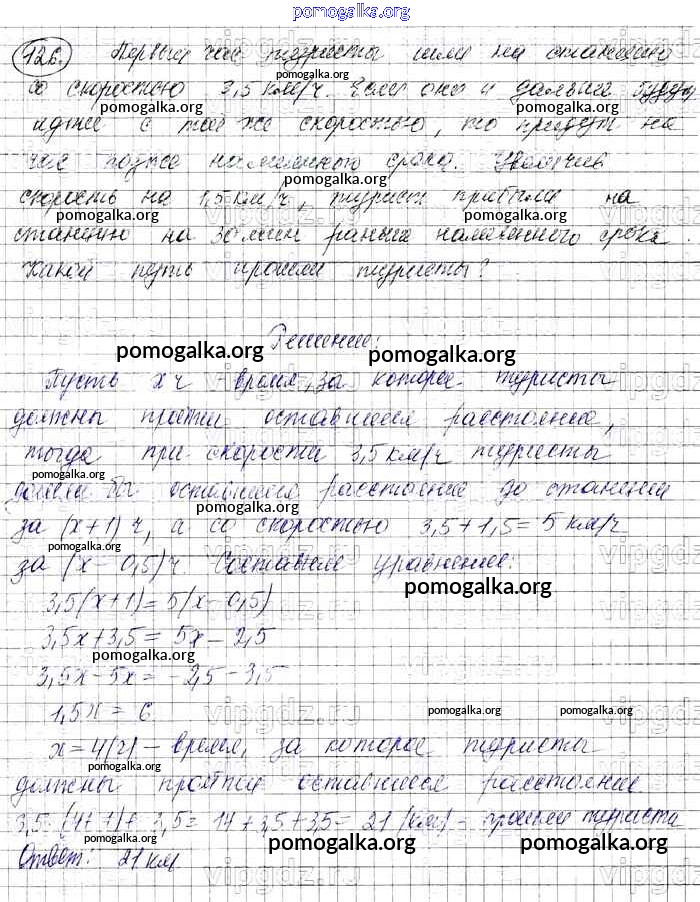 pomogalka.org
126. Первый час туристы шли на станцию
со скоростью 3,5 км/ч. Если они и дальше будут
pomogalka.org pomogalka.org
идти с той же скоростью, то придут на
час позже намеченного срока. Увеличив
pomogalka.org
скорость на 1,5 км/ч, туристы прибыли на
pomogalka.org pomogalka.org
станцию на 30 мин раньше намеченного срока.
Какой путь прошли туристы?
Решение:
pomogalka.org pomogalka.org
Пусть х ч – время, за которое туристы
должны пройти оставшееся расстояние,
тогда при скорости 3,5 км/ч туристы
pomogalka.org pomogalka.org
дошли бы оставшееся расстояние до станции
pomogalka.org
за (х+1) ч, а со скоростью 3,5+1,5=5 км/ч
pomogalka.org
за (х-0,5) ч. Составим уравнение:
pomogalka.org
3,5(х+1)=5(х-0,5)
3,5х+3,5=5х-2,5
pomogalka.org
3,5х-5х=-2,5-3,5
1,5х=6
pomogalka.org pomogalka.org
х=4(ч) – время, за которое туристы
pomogalka.org
должны пройти оставшееся расстояние
3,5·(4+1)+3,5=14+3,5+3,5=21 (км) – прошли туристы
pomogalka.org pomogalka.org pomogalka.org
Ответ: 21 км
vipgdz.ru